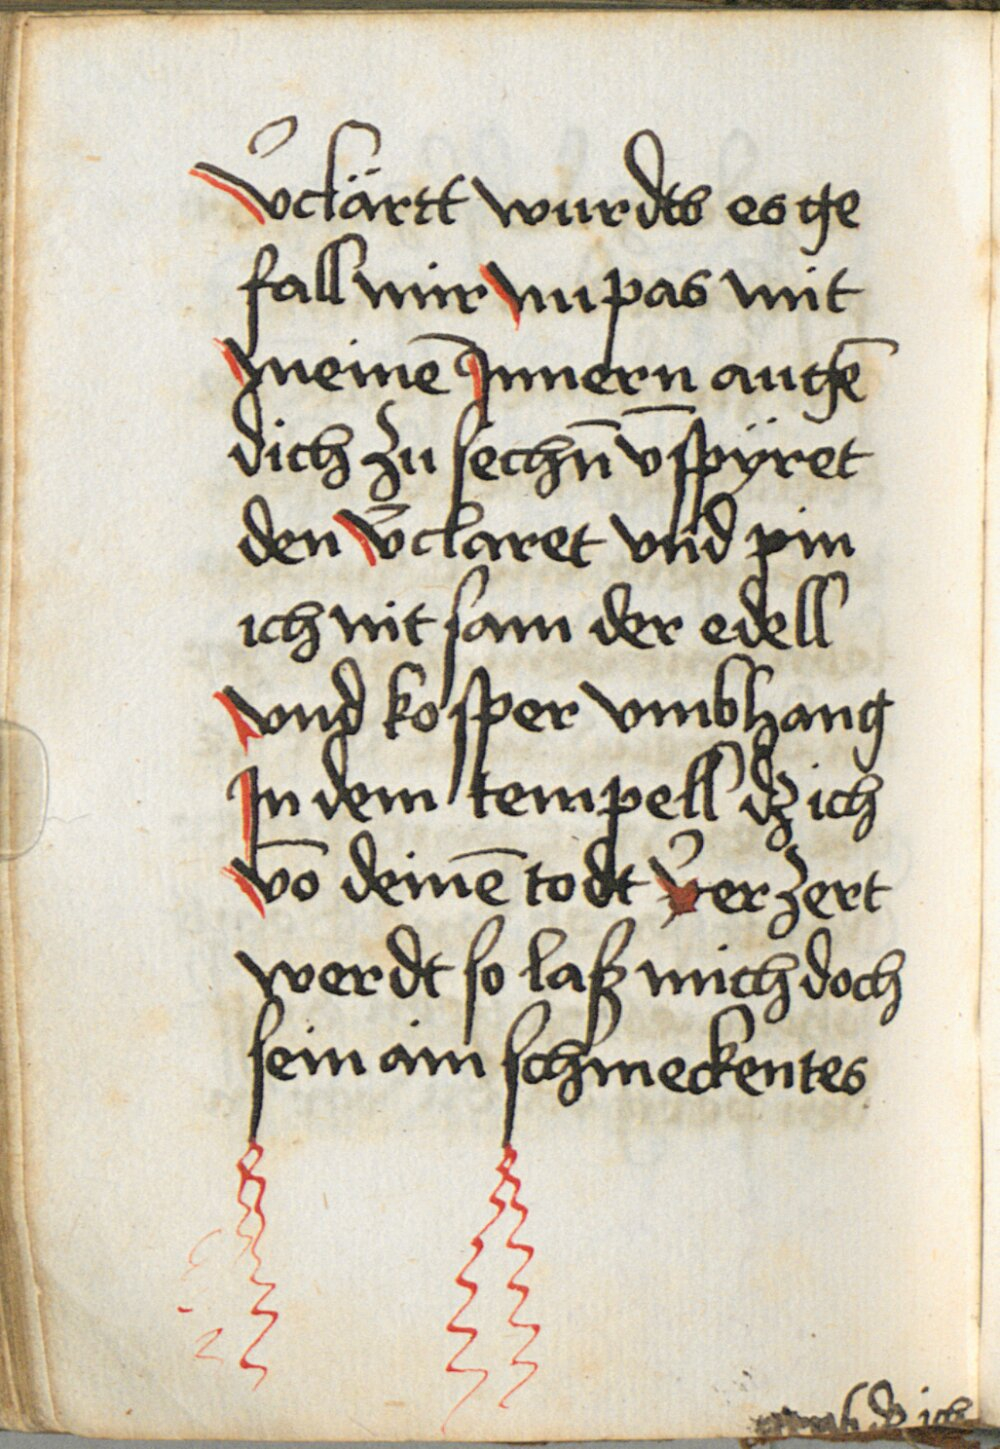 v̉clärtt wurdts es ge
fall mir nu pas mit
meinē Innern augē
dich zu sechn̄ v̄spÿret
den v̉claret vnd pin
ich nit sam der edell
vnd kosper vmbhang
In dem tempell dz ich
vō deinē todt v̉erzert
werdt so laß mich doch
sein ain schmeckentes
dz ich